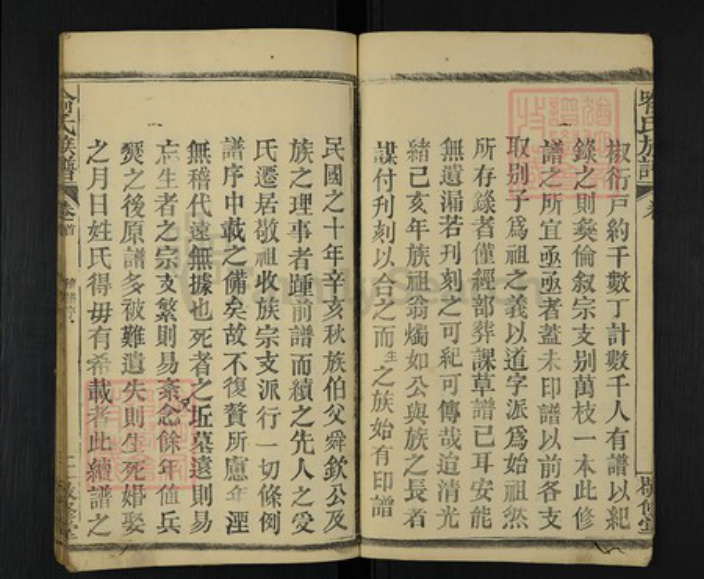 椒衍戶約千數丁計數千人有譜以紀
錄之則彝倫叙宗支别萬枝一本此修
譜之所宜亟亟者蓋未印譜以前各支
取别子爲祖之義以道字派爲始祖然
所存錄者僅經部葬課草譜已耳安能
無遺漏若刋刻之可紀可傳哉迨清光
緒己亥年族祖翁燭如公與族之長者
謀付刋刻以合之而生之族始有印譜
民國之十年辛亥秋族伯父舜欽公及
族之理事者踵前譜而續之先人之受
氏遷居敬祖收族宗支派行一切條例
譜序中載之備矣故不復贅所慮年湮
無稽代遠無據也死者之坵墓遠則易
忘生者之宗支繁則易紊念餘年値兵
燹之後原譜多被難遺失則生死婚娶
之月日姓氏得毋有希載者此續譜之
喻氏族譜
卷首